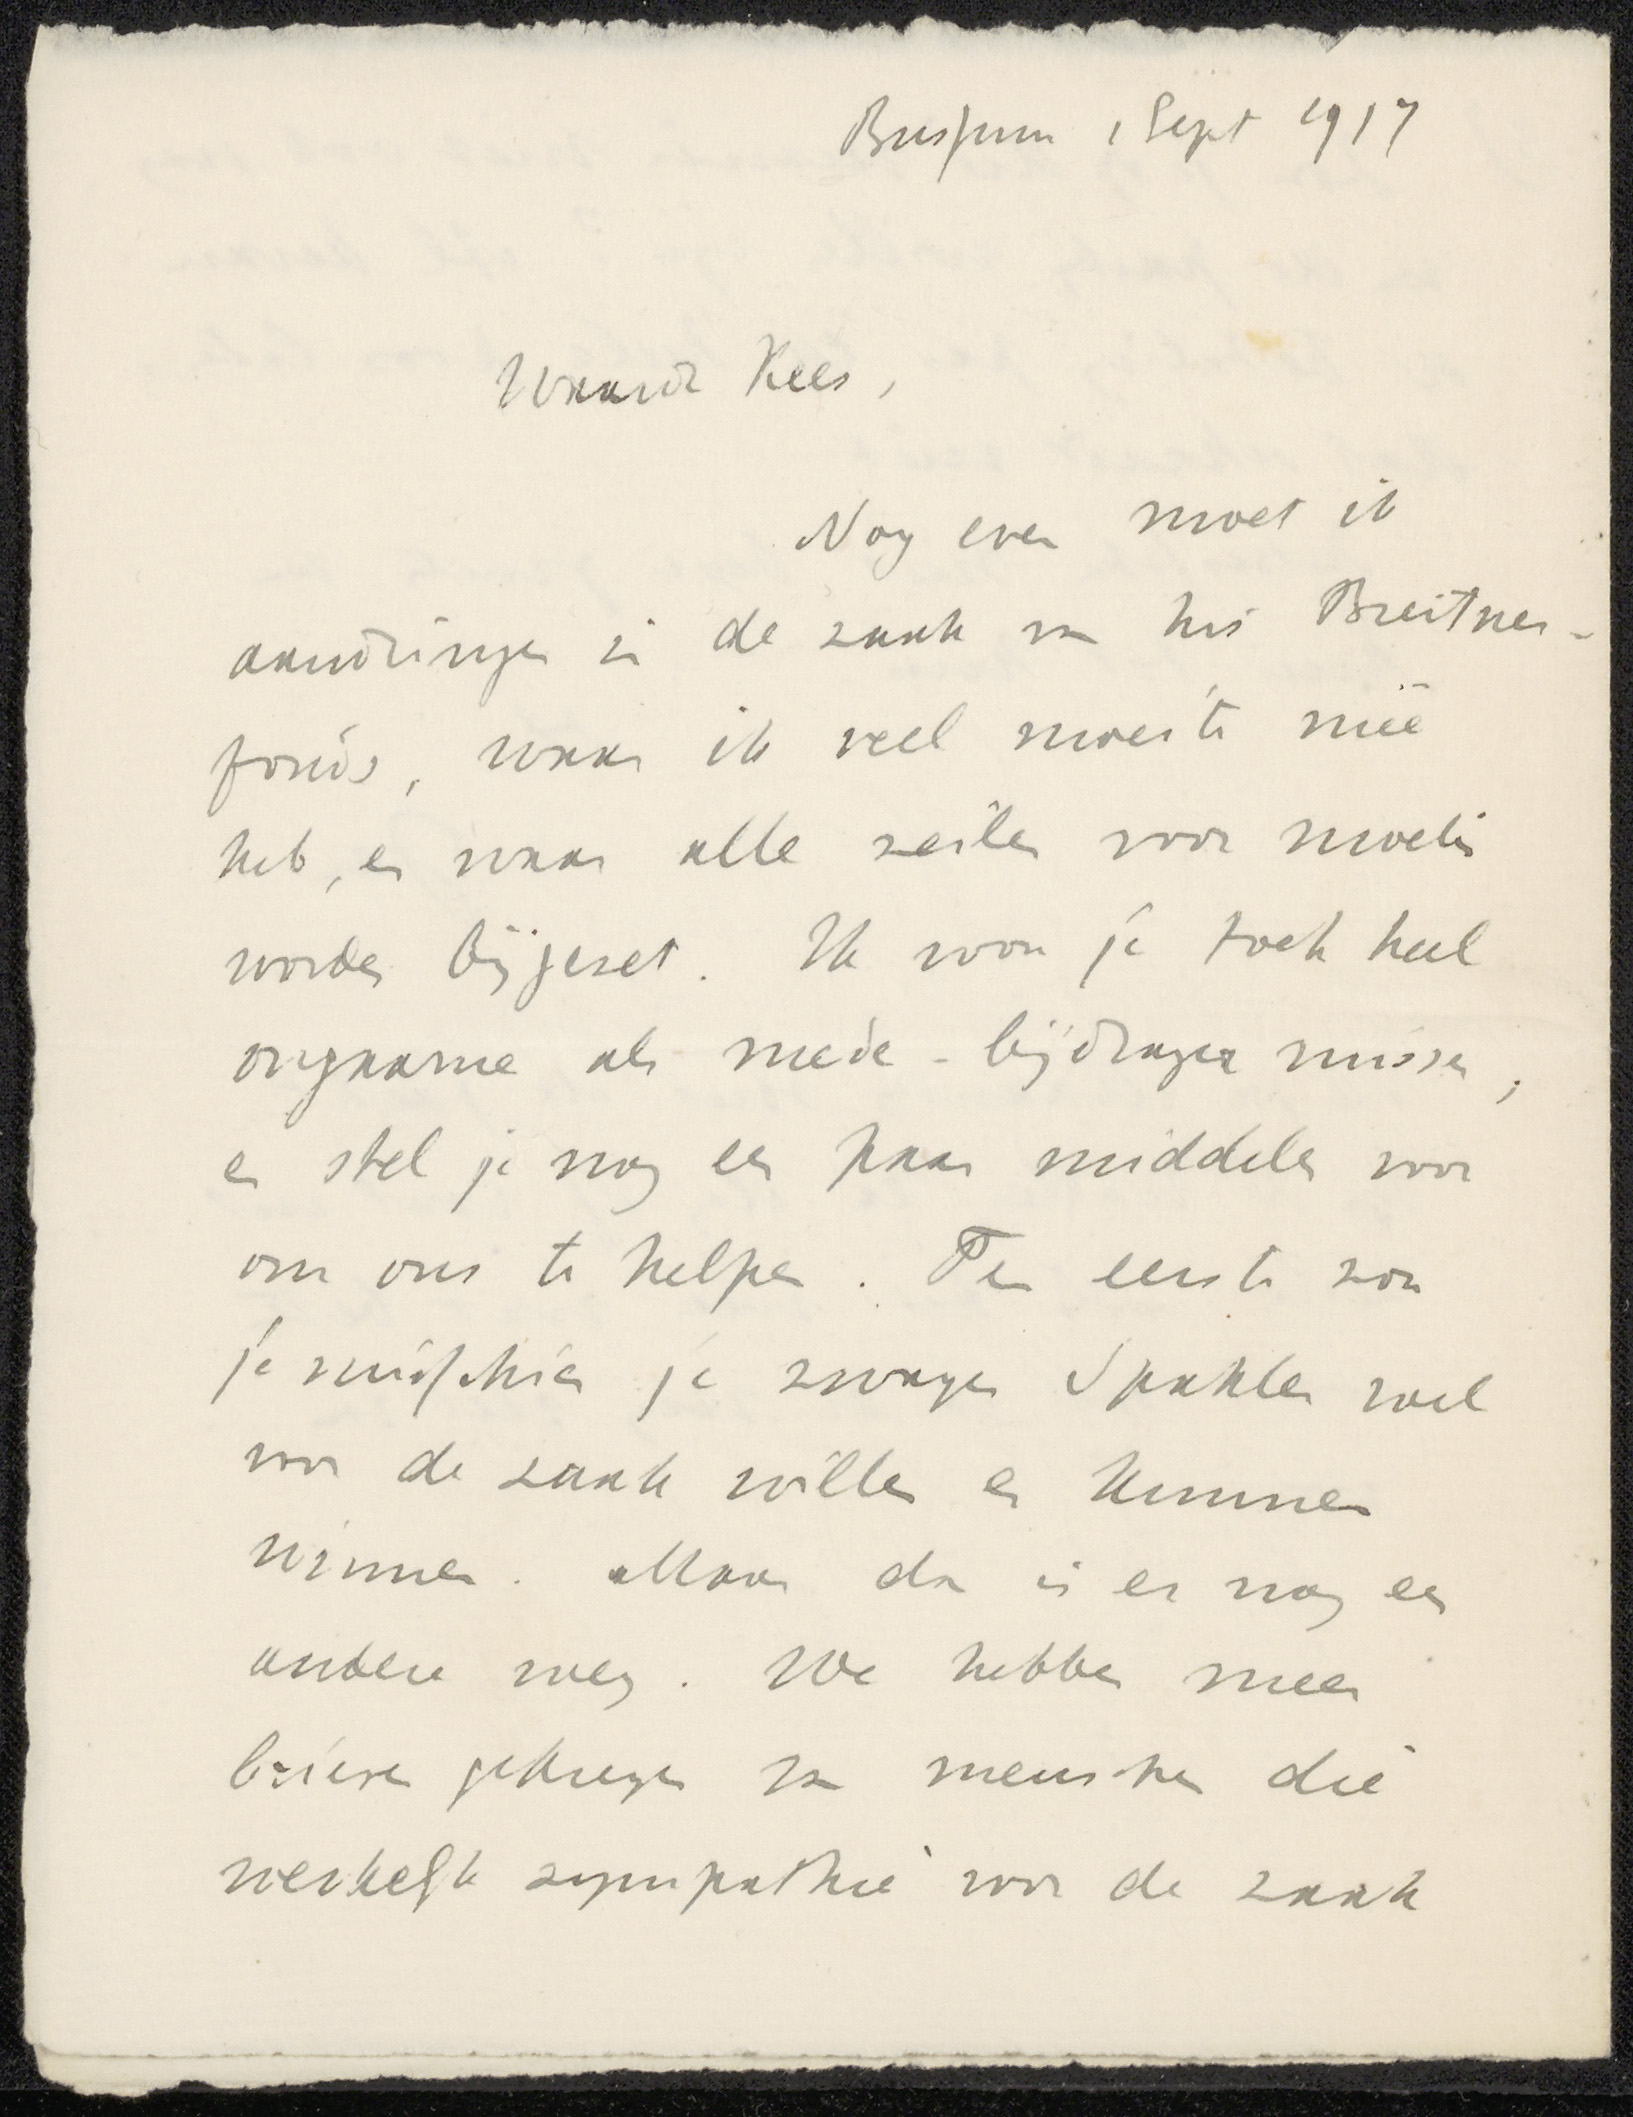 Bussum 1 Sept 1917
Waarde Kees,
Nog even moet ik
aandringen in de zaak van het Breitner-
fonds, waar ik veel moeite mee
heb, en waar alle zeilen voor moeten
worden bijgezet. Ik zou je toch heel
ongaarne als mede-bijdrager missen,
en stel je nog een paar middelen voor
om ons te helpen. Ten eerste zou
je misschien je zwager Spakler wel
voor de zaak willen en kunnen
winnen. Maar dan is er nog een
andere weg. We hebben meer
brieven gekregen van menschen die
werkelijk sympathie voor de zaak